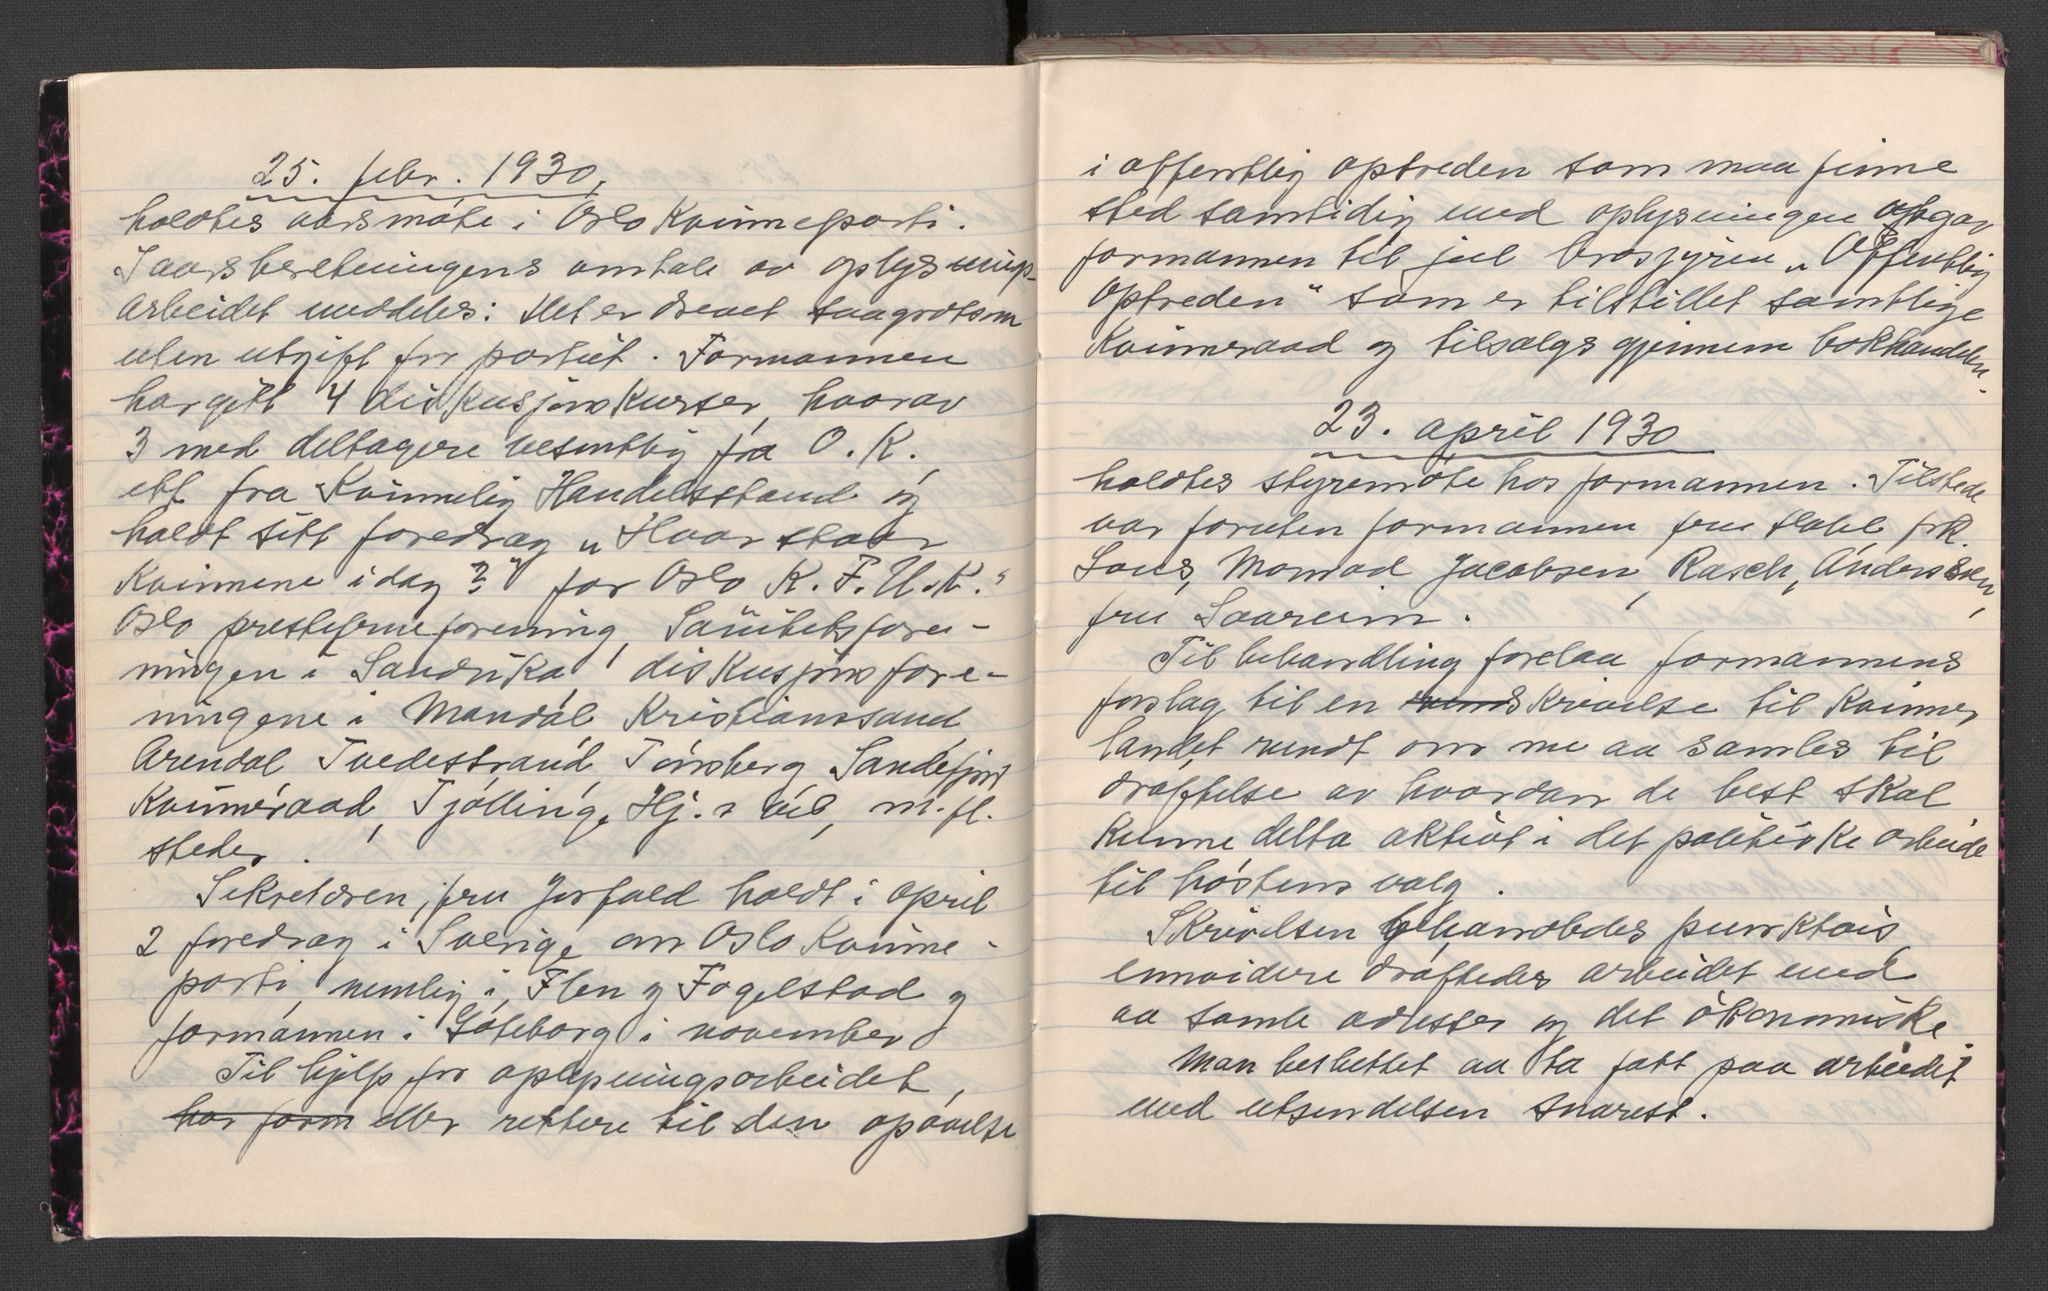 25. febr. 1930,
holdtes aarsmøte i Oslo Kvinneparti.
I aarsberetningens omtale av oplysnings-
arbeidet meddeles: Det er drevet saagodtsom
uten utgift for partiet. Formannen
har gitt 4 diskusjonskurser, hvorav
3 med deltagere vesentlig fra O. K.,
ett fra Kvinnelig Handelsstand og
holdt sitt foredrag „Hvor staar
Kvinnene i dag?" for Oslo K. F. U. K.
Oslo prestefrueforening, Sanitetsfore-
ningen i Sandvika, diskusjonsfore-
ningene i Mandal, Kristianssand,
Arendal, Tvedestrand, Tønsberg, Sandefjord
Kvinneraad, Tjølling, m. fl.
steder.
Sekretæren, fru holdt i april
2 foredrag i Sverige om Oslo Kvinne-
parti, nemlig i Flen og Fogelstad og
formannen i Göteborg i november
Til hjelp for oplysningsarbeidet,
har form eller rettere til den opøvelse
i offentlig optreden som maa finne
sted samtidig med oplysningen utgav
formannen til jul brosjyren „Offentlig
Optreden" som er tilstillet samtlige
Kvinneraad og tilsalgs gjennem bokhandelen.
23. april 1930
holdtes styremøte hos formannen. Tilstede
var foruten formannen fru Dahl frk.
Lous, Monrad, Jacobsen, Rasch, Anderssen,
fru Saareim.
Til behandling forelaa formannens
forslag til en skrivelse til Kvinner
landet rundt om me aa samles til
drøftelse av hvordan de best skal
kunne delta aktivt i det politiske arbeide
til høstens valg.
Skrivelsen behandledes punktvis,
ennvidere drøftedes arbeidet med
aa samle adresser og det økonomiske
Man besluttet aa ta fatt paa arbeidet
med utsendelsen snarest.